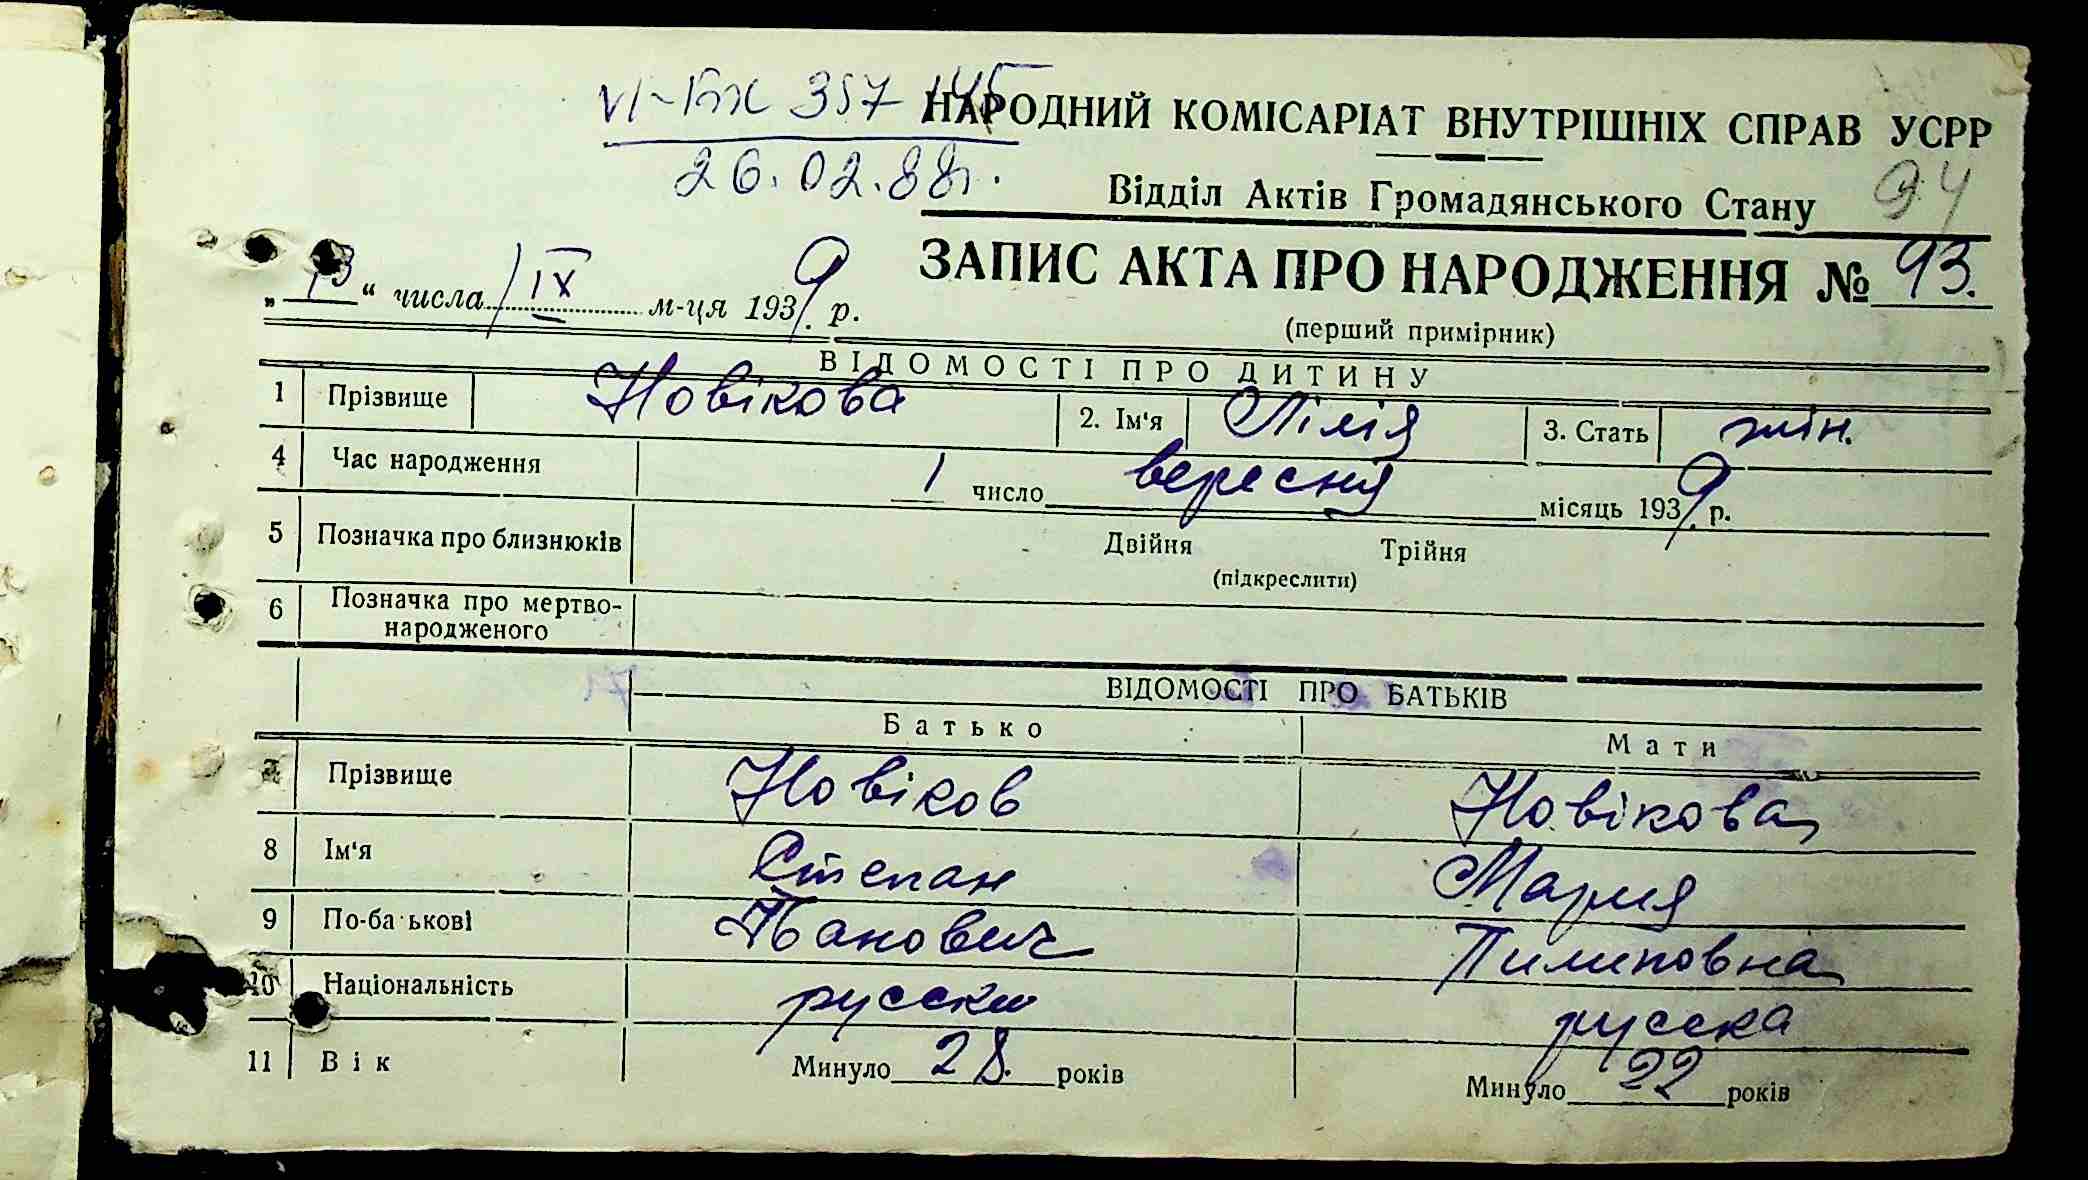 VI-БЖ 357 145
26.02.88г.
НАРОДНИЙ КОМІСАРІАТ ВНУТРІШНІХ СПРАВ УСРР
Відділ Актів Громадянського Стану
94
ЗАПИС АКТА ПРО НАРОДЖЕННЯ № 93.
„13“ числа IX м-ця 1939 р.
(перший примірник)
ВІДОМОСТІ ПРО ДИТИНУ
1 Прізвище Новікова 2. Ім'я Лілія 3. Стать жін.
4 Час народження 1 число вересня місяць 1939 р.
5 Позначка про близнюків Двійня Трійня
(підкреслити)
6 Позначка про мертво-
народженого
ВІДОМОСТІ ПРО БАТЬКІВ
Батько Мати
7 Прізвище Новіков Новікова
8 Ім'я Степан Мария
9 По-батькові Панович Пилиповна
10 Національність русски русска
11 Вік Минуло 28. років Минуло 22 років